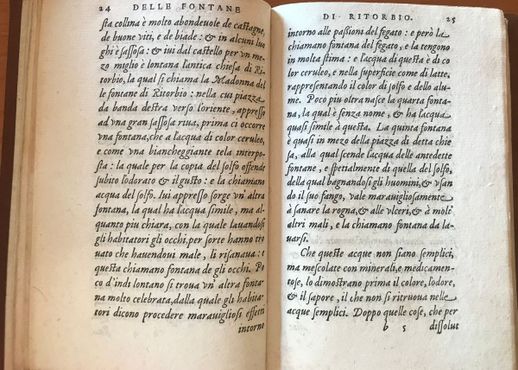 24 DELLE FONTANE
sta collina è molto abondevole de castagne,
de buone viti, e de biade: & in alcuni luo
ghi è sassosa: & iui dal castello per vn me
zo miglio è lontana l'antica chiesa di Ri-
torbio, la qual si chiama la Madonna del
le fontane di Ritorbio: nella cui piazza
da banda destra verso l'oriente, appresso
ad vna gran sassosa riua, prima ci occorre
vna fontana, che a l'acqua di color ceruleo,
e come vna biancheggiante tela interpo-
sta: la quale per la copia del solfo offende
subito l'odorato & il gusto: e la chiamano
acqua del solfo. lui appresso sorge vn'altra
fontana, la qual ha l'acqua simile, ma al-
quanto piu chiara, con la quale lauandosi
gli habitatori gli occhi, per sorte hanno tro
uato che hauendoui male, li risanaua: e
questa chiamano fontana de gli occhi. Po
co d'indi lontano si troua vn'altra fonta-
na molto celebrata, dalla quale gli habita-
tori dicono procedere marauigliosi effetti
intorno
DI RITORBIO. 25
intorno alle passioni del fegato: e però la
chiamano fontana del fegato, e la tengono
in molta stima: e l'acqua di questa è di co
lor ceruleo, e nella superficie come di latte,
rappresentando il color di solfo e dello alu-
me. Poco piu oltra nasce la quarta fonta-
na, la qual è senza nome, & ha l'acqua
quasi simile à questa. La quinta fontana
è quasi in mezo della piazza di detta chie
sa, alla qual scende l'acqua delle antedette
fontane, e spetialmente di quella del solfo,
della qual bagnandosi gli huomini, & vsan
do il suo fango, vale marauigliosamente
à sanare la rogna, & alle vlceri, & à molti
altri mali, e la chiamano fontana da la-
uarsi.
Che queste acque non siano semplici,
ma mescolate con minerali, e medicamen-
tose, lo dimostrano prima il colore, l'odore,
& il sapore, il che non si ritruoua nelle
acque semplici. Doppo quelle cose, che per
b 5 dissolut